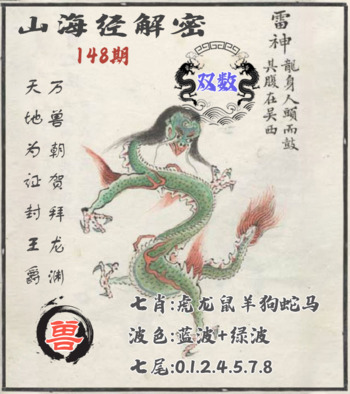 山海经解密
148期
雷神
龍身人頭而鼓
其腹在吴西
双数
万兽朝贺拜龙渊
天地为证封王爵
兽
七肖:虎龙鼠羊狗蛇马
波色:蓝波+绿波
七尾:0.1.2.4.5.7.8